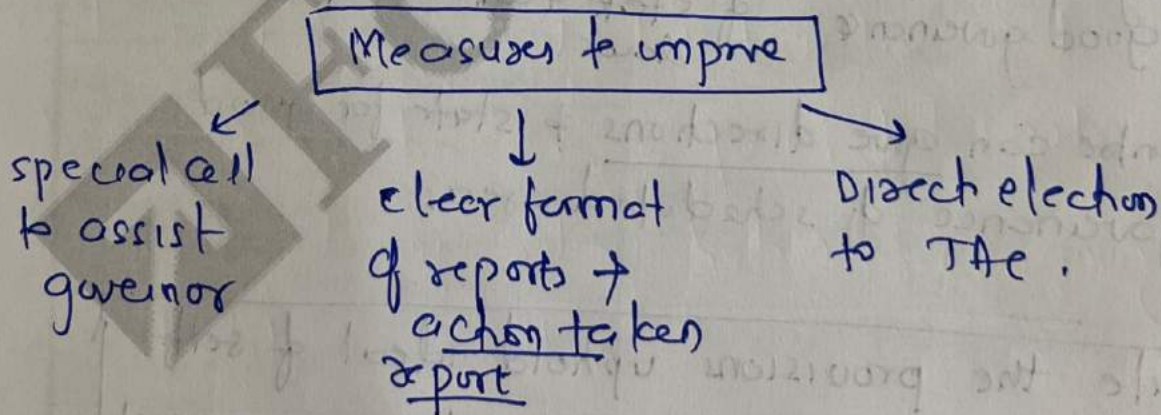 Measures to improve
special cell
to assist
governor
clear format
of reports +
action taken
report
Direct election
to TAC.